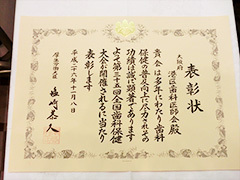 表彰状
大阪府
港区歯科医師会殿
貴会は多年にわたり歯科
保健の普及向上に尽力されその
功績は誠に顕著であります
よって第三十五回全国歯科保健
大会が開催されるに当たり
表彰します
平成二十六年十一月八日
厚生労働大臣
塩崎恭久